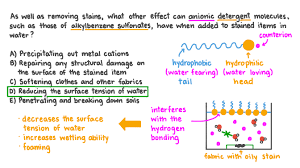 As well as removing stains, what other effect can anionic detergent molecules,
such as those of alkylbenzene sulfonates, have when added to stained items in
water?
A) Precipitating out metal cations
B) Repairing any structural damage on
the surface of the stained item
C) Softening clothes and other fabrics
D) Reducing the surface tension of water
E) Penetrating and breaking down soils
counterion
hydrophobic
(water fearing)
tail
hydrophilic
(water loving)
head
• decreases the surface
tension of water
• increases wetting ability
• foaming
interferes
with the
hydrogen
bonding
fabric with oily stain